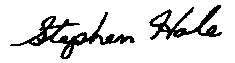 Stephen Hale